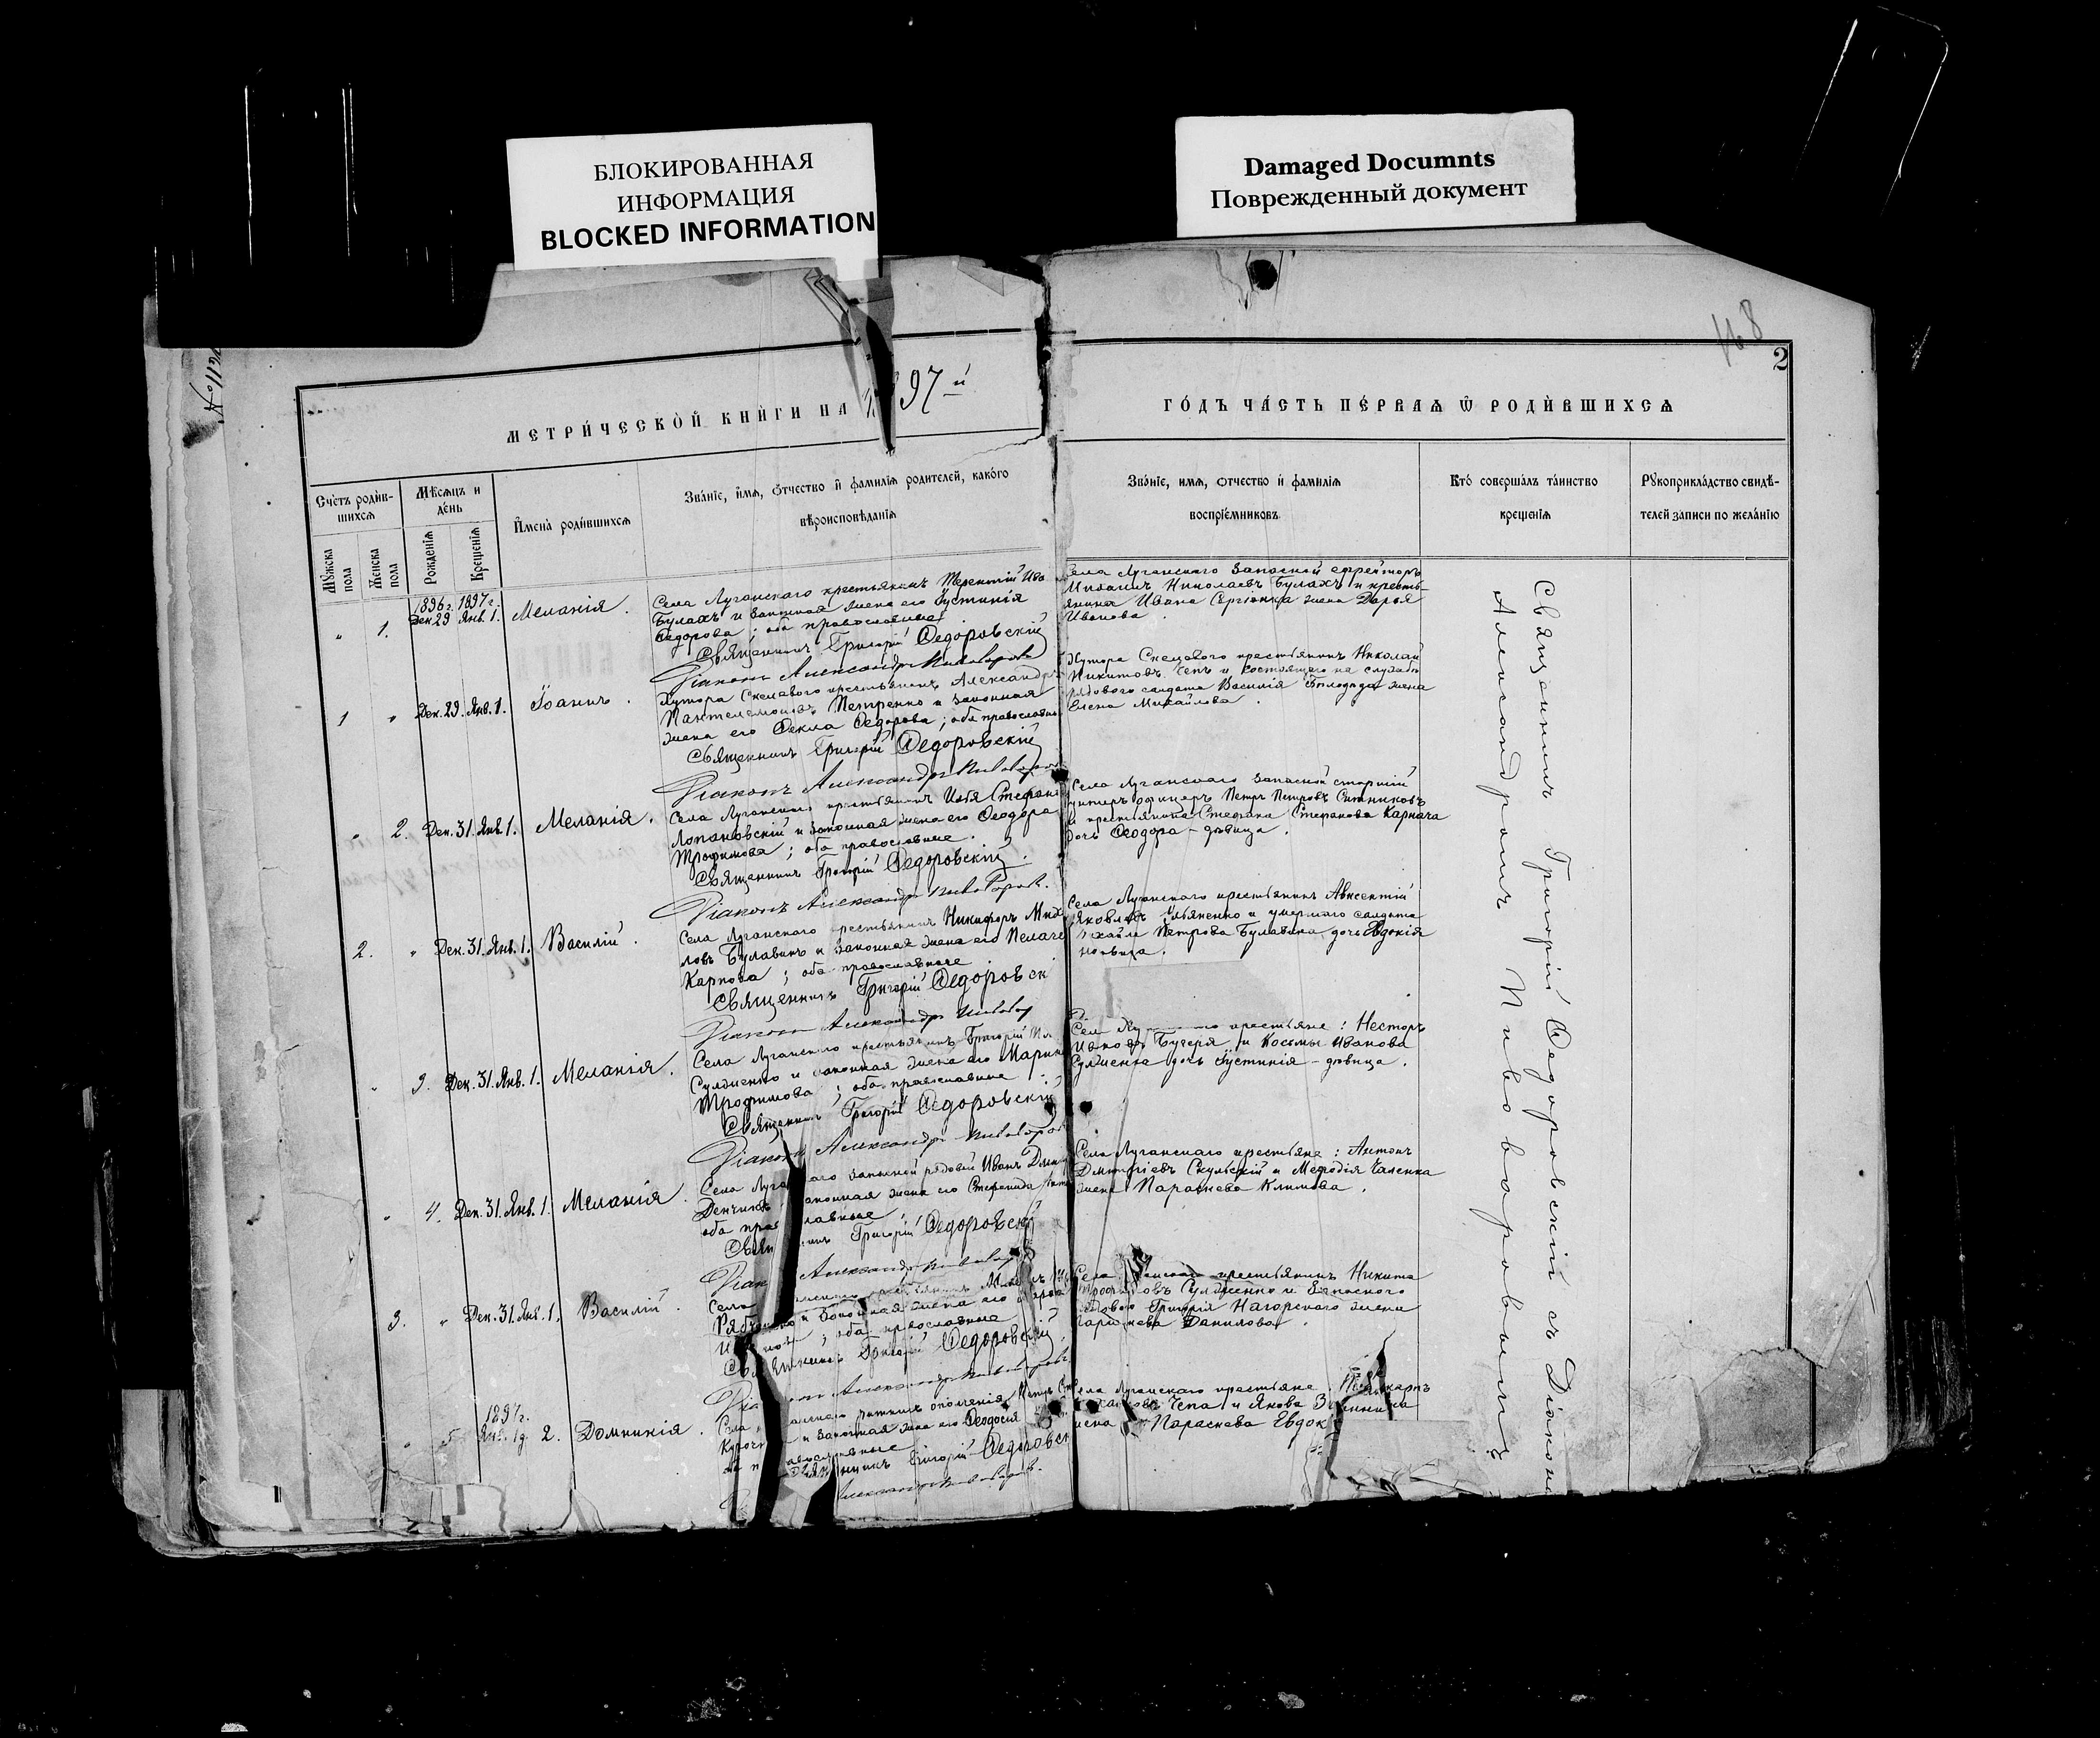 БЛОКИРОВАННАЯ
ИНФОРМАЦИЯ
BLOCKED INFORMATION
Damaged Documnts
Поврежденный документ
168
2
МЕТРИ́ЧЕСКОЙ КНИ́ГИ НА 97й
ГО́ДЪ ЧА́СТЬ ПЕ́РВАѦ Ѿ РОДИ́ВШИХСѦ
Сче́тъ роди́в-
шихсѧ
Мѣсѧцъ и
де́нь
Мꙋ́жска
пола
Же́нска
пола
Рожде́нїѧ
Креще́нїѧ
И҆мена̀ роди́вшихсѧ
Зва́нїе, и҆́мѧ, ѻ҆́тчество и҆ фамилїѧ родителей, како́го
вѣроисповѣданїѧ
Зва́нїе, имѧ, ѻтчество и҆ фами́лїѧ
воспрїе́мниковъ
Кто̀ соверша́лъ та́инство
креще́нїѧ
Рꙋкоприкла́дство свидѣ́-
телей записи по жела́нїю
1896г. 1897г.
" 1. Дек. 29 Янв. 1. Меланія.
Села Луганскаго крестьянинъ Терентій Ива
Булахъ и законная жена его Іустинія
Ѳедорова; оба православные
Священникъ Григорій Ѳедоровскій
Діаконъ Александръ Пивоваровъ
Села Луганскаго запасной ефрейторъ
Михаилъ Николаевъ Булахъ и кресть-
янина Ивана Сергіенка жена Дарья
Иванова.
1 " Дек. 29. Янв. 1. Іоаннъ.
Хутора Скелеваго крестьянинъ Александръ
Пантелеимоновъ Петренко и законная
жена его Ѳекла Ѳедорова; оба православн
Священникъ Григорій Ѳедоровскій
Діаконъ Александръ Пивоваров
Хутора Скелеваго крестьянинъ Николай
Никитовъ Чепъ и состоящаго на службѣ
рядоваго солдата Василія жена
Елена Михайлова.
" 2. Дек. 31. Янв. 1. Меланія.
Села Луганскаго крестьянинъ Илья Стефан
Лопановскій и законная жена его Ѳеодора
Трофимова; оба православные.
Священникъ Григорій Ѳедоровскій.
Діаконъ Александръ Пивоваров.
Села Луганскаго запасной старшій
унтеръ офицеръ Петръ Петровъ Ситниковъ
и крестьянина Стефана Стефанова Карнача
дочь Ѳеодора – дѣвица.
2. " Дек. 31. Янв. 1. Василій.
Села Луганскаго крестьянинъ Никифоръ Миха
ловъ Булавинъ и законная жена его Пелаге
Карпова; оба православные
Священникъ Григорій Ѳедоровскі
Діаконъ Александръ Пивовар
Села Луганскаго крестьянинъ Авксентій
Яковлевъ Ульяненко и умершаго солдата
хаила Петрова Булавина дочь Евдокія
дѣвица.
" 3. Дек. 31. Янв. 1. Меланія.
Села Луганскаго крестьянинъ Григорій
Сулименко и законная жена его Марина
Трофимова; оба православные
Священникъ Григорій Ѳедоровскій
Діаконъ Александръ Пивоваров
Села крестьяне: Несторъ
Ивановъ Бугерія и Косьмы Иванова
Сулименка дочь Іустинія – дѣвица.
" 4. Дек. 31. Янв. 1. Меланія.
Села Луга аго запасной рядовой Иванъ Дми
Денчикъ аконная жена его Стефанида
оба прав лавные.
Свящ никъ Григорій Ѳедоровскі
Діак Александръ Пивовар
Села Луганскаго крестьяне: Антонъ
Дмитріевъ Скульскій и Меѳодія Чаленка
жена Параскева Климова.
3. " Дек. 31. Янв. 1. Василій.
Села крестьянинъ
и законная жена его
; оба православные
Священникъ Григорій Ѳедоровскій
Александръ Пивоваровъ
Села крестьянинъ Никита
Трофимовъ Сулименко и запаснаго
рядоваго Григорія Нагорскаго жена
Параскева Данилова.
1897г.
" 5 Янв. 1д. 2. Домникія.
Села ополченія Петръ
и законная жена его Ѳеодосія
православные
Григорій Ѳедоровск
Пивоваров.
Села Луганскаго крестьяне
Чепа и Якова
жена Параскева Евдок
Священникъ Григорій Ѳедоровскій съ Діакономъ
Александромъ Пивоваровымъ